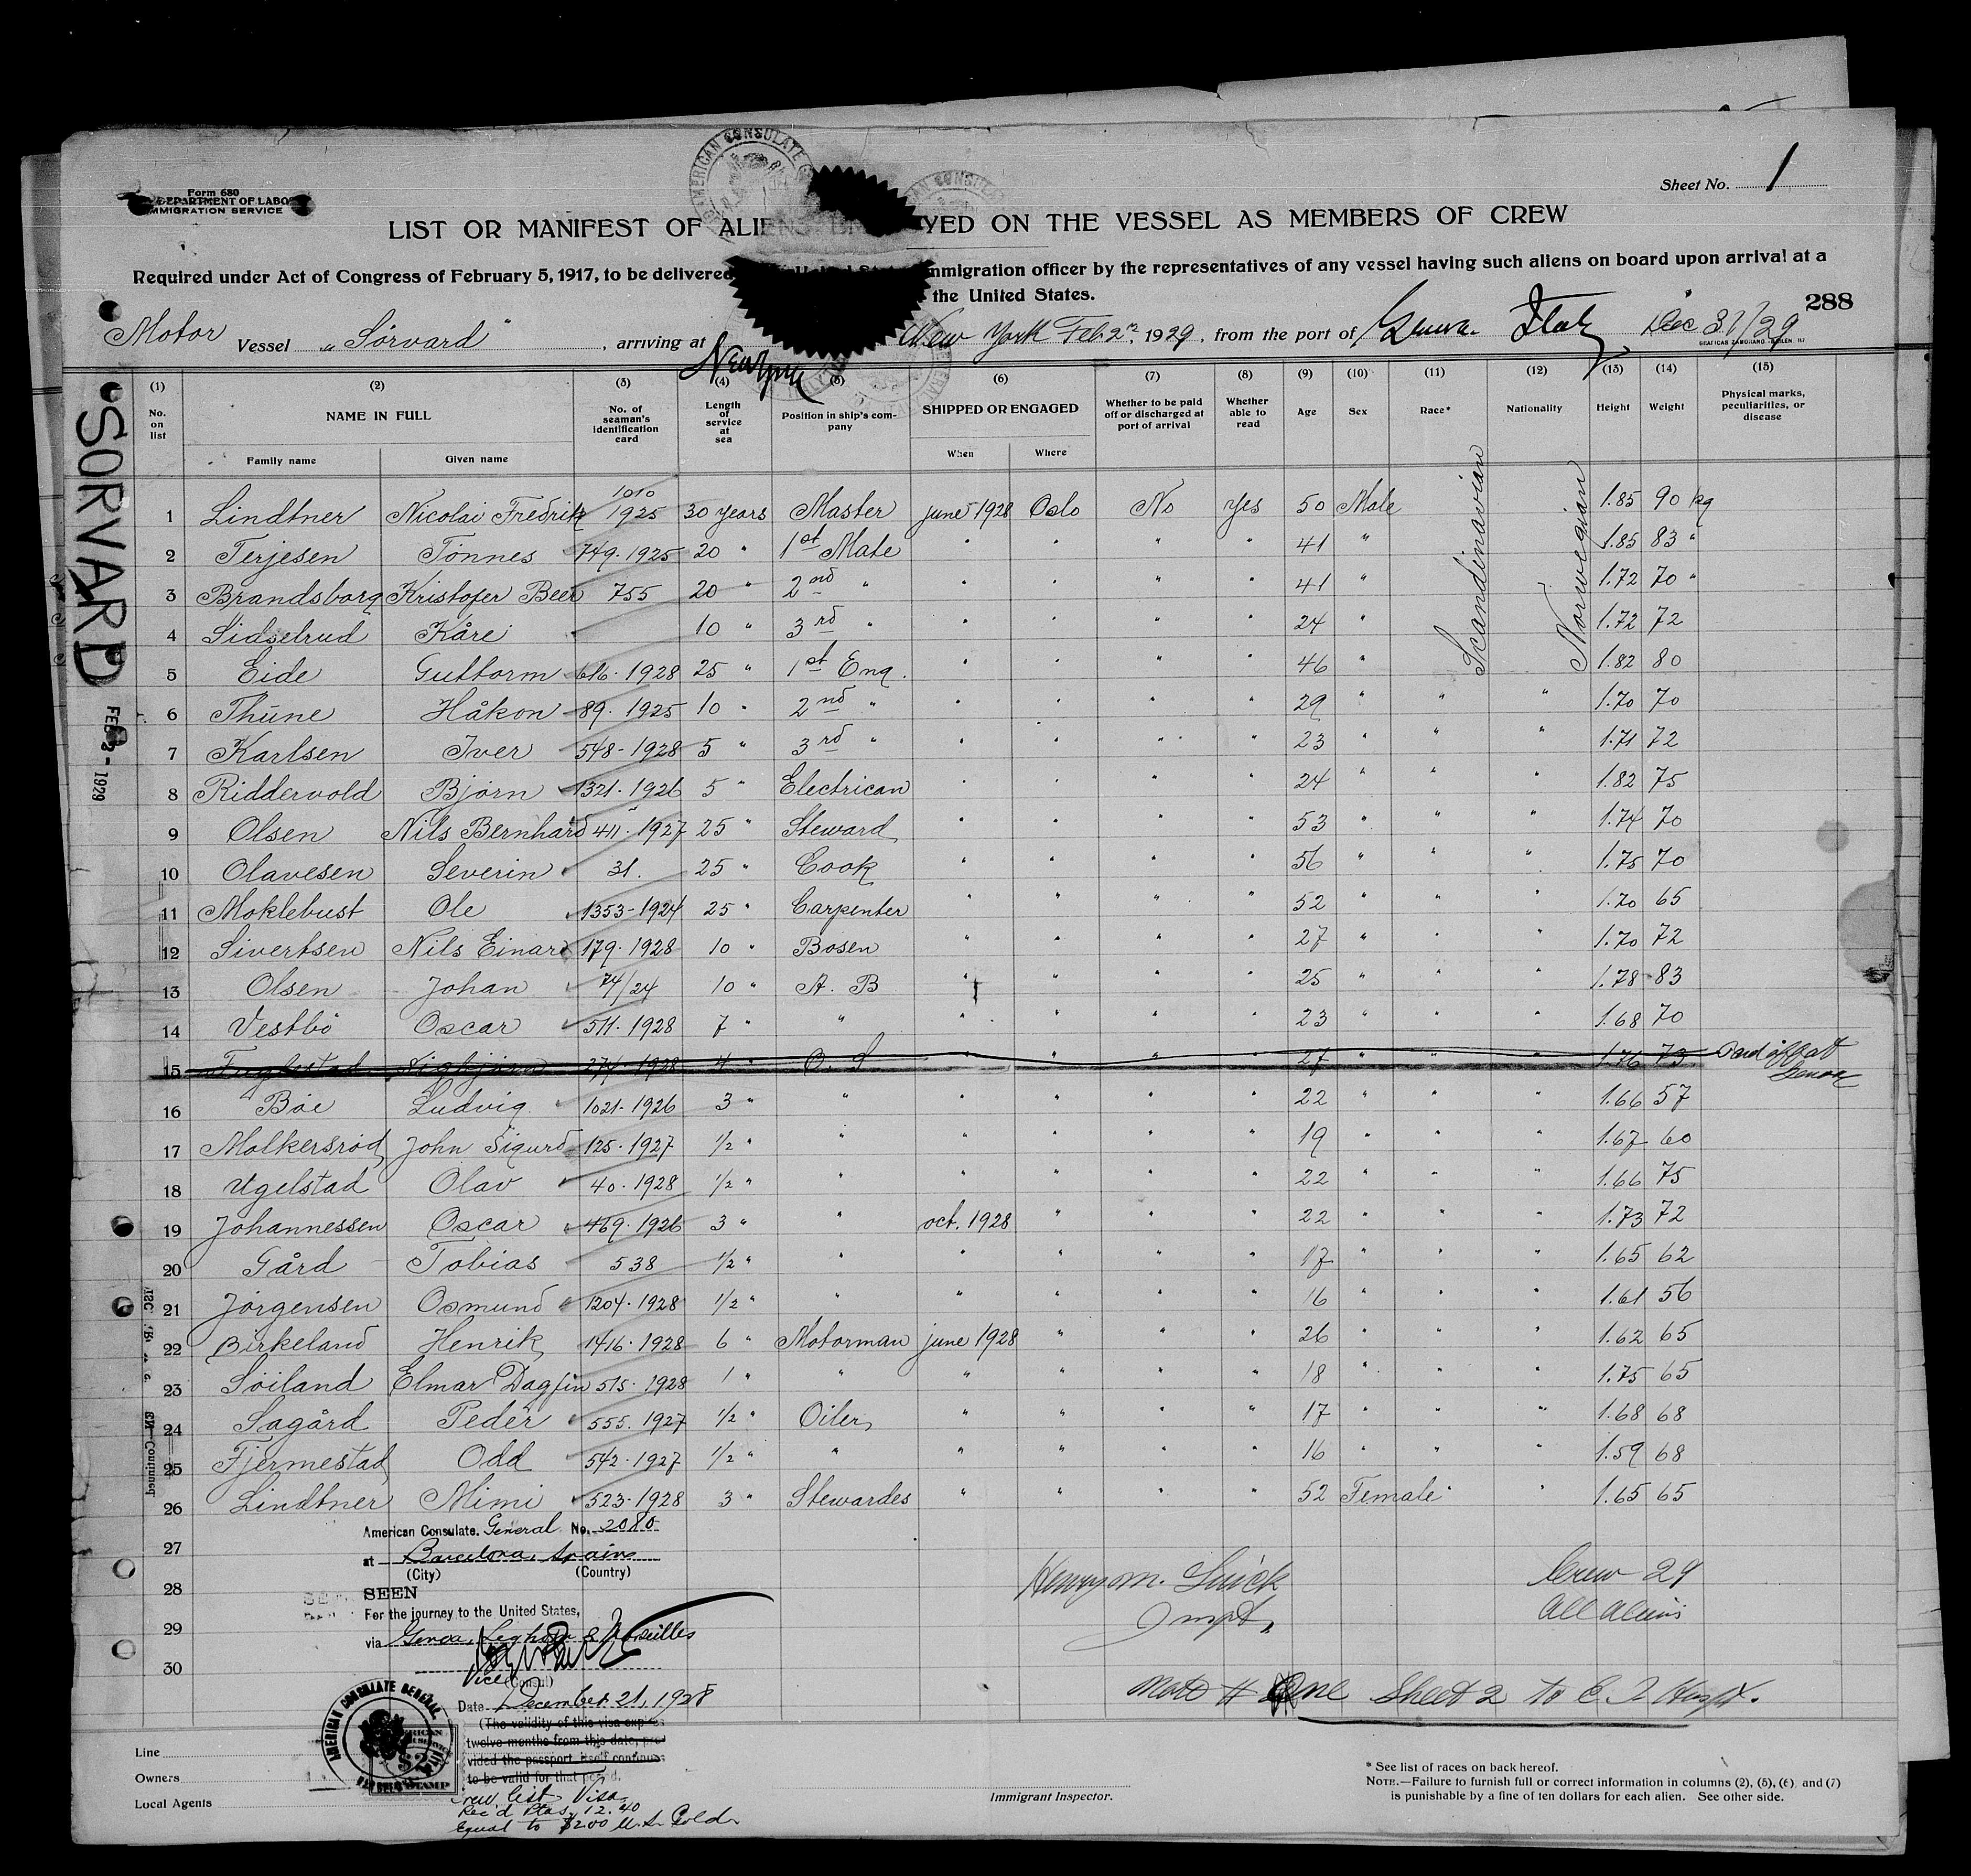 Sheet No. 1
Form 680
DEPARTMENT OF LABOR
IMMIGRATION SERVICE
AMERICAN CONSULATE
LIST OR MANIFEST OF ALIENS YED ON THE VESSEL AS MEMBERS OF CREW
Required under Act of Congress of February 5, 1917, to be delivered United States immigration officer by the representatives of any vessel having such aliens on board upon arrival at a
the United States.
288
Motor Vessel "Sörvard", arriving at New York Feb 2nd, 1929, from the port of Genoa Italy Dec 31/29
New York
SORVARD FEB 2 - 1929
(1) (2) (3) (4) (5) (6) (7) (8) (9) (10) (11) (12) (13) (14) (15)
No. on list NAME IN FULL No. of seaman's identification card Length of service at sea Position in ship's company SHIPPED OR ENGAGED Whether to be paid off or discharged at port of arrival Whether able to read Age Sex Race* Nationality Height Weight Physical marks, peculiarities, or disease
Family name Given name When Where
1 Lindtner Nicolai Fredrik 1010 1925 30 years Master june 1928 Oslo No yes 50 Male Scandinavian Norwegian 1.85 90 kg
2 Terjesen Tönnes 749-1925 20 " 1st Mate " " " " 41 " 1.85 83 "
3 Brandsborg Kristofer Beer 755 20 " 2nd " " " " " 41 " 1.72 70 "
4 Sidselrud Kåre 10 " 3rd " " " " " 24 " 1.72 72
5 Eide Guttorm 616-1928 25 " 1st Eng. " " " " 46 " 1.82 80
6 Thune Håkon 89-1925 10 " 2nd " " " " " 29 " " " 1.70 70
7 Karlsen Iver 548-1928 5 " 3rd " " " " " 23 " " " 1.71 72
8 Riddervold Bjorn 1321-1926 5 " Electrican " " " " 24 " " " 1.82 75
9 Olsen Nils Bernhard 411-1927 25 " Steward " " " " 53 " " " 1.74 70
10 Olavesen Severin 31. 25 " Cook " " " " 56 " " " 1.75 70
11 Moklebust Ole 1353-1924 25 " Carpenter " " " " 52 " " " 1.70 65
12 Sivertsen Nils Einar 179-1928 10 " Bosen " " " " 27 " " " 1.70 72
13 Olsen Johan 74/24 10 " A. B " " " " 25 " " " 1.78 83
14 Vestbö Oscar 511-1928 7 " " " " " " 23 " " " 1.68 70
15 Fuglestad Sigbjörn 274-1928 4 " O. S " " " " 27 " " " 1.76 73 Paid off at Genoa
16 Böe Ludvig 1021-1926 3 " " " " " " 22 " " " 1.66 57
17 Molkersrod John Sigurd 125-1927 1/2 " " " " " " 19 " " " 1.67 60
18 Ugelstad Olav 40-1928 1/2 " " " " " " 22 " " " 1.66 75
19 Johannessen Oscar 469-1926 3 " " oct. 1928 " " " 22 " " " 1.73 72
20 Gård Tobias 538 1/2 " " " " " " 17 " " " 1.65 62
21 Jörgensen Osmund 1204-1928 1/2 " " " " " " 16 " " " 1.61 56
22 Birkeland Henrik 1416-1928 6 " Motorman june 1928 " " " 26 " " " 1.62 65
23 Soiland Elmar Dagfin 515-1928 1 " " " " " " 18 " " " 1.75 65
24 Sagård Peder 555-1927 1/2 " Oiler " " " " 17 " " " 1.68 68
25 Fjermestad Odd 542-1927 1/2 " " " " " " 16 " " " 1.59 68
26 Lindtner Mimi 523-1928 3 " Stewardes " " " " 52 Female " " 1.65 65
American Consulate. General No. 2080
27 at Barcelona, Spain
(City) (Country)
28 SEEN
Henry M. Crew 29
For the journey to the United States,
29 Inspt. All Aliens
via Genoa, Leghorn & Marseilles
30
Vice (Consul)
Sheet 2 to
Date December 21, 1928
(The validity of this visa expires
twelve months from this date, pro-
vided the passport itself continues
to be valid for that period.
AMERICAN CONSULATE GENERAL
$2
Line
Owners
Local Agents
Crew list Visa
Rec'd Ptas. 12.40
Equal to $2.00 U.S. Gold
Immigrant Inspector.
* See list of races on back hereof.
NOTE.—Failure to furnish full or correct information in columns (2), (5), (6) and (7)
is punishable by a fine of ten dollars for each alien. See other side.